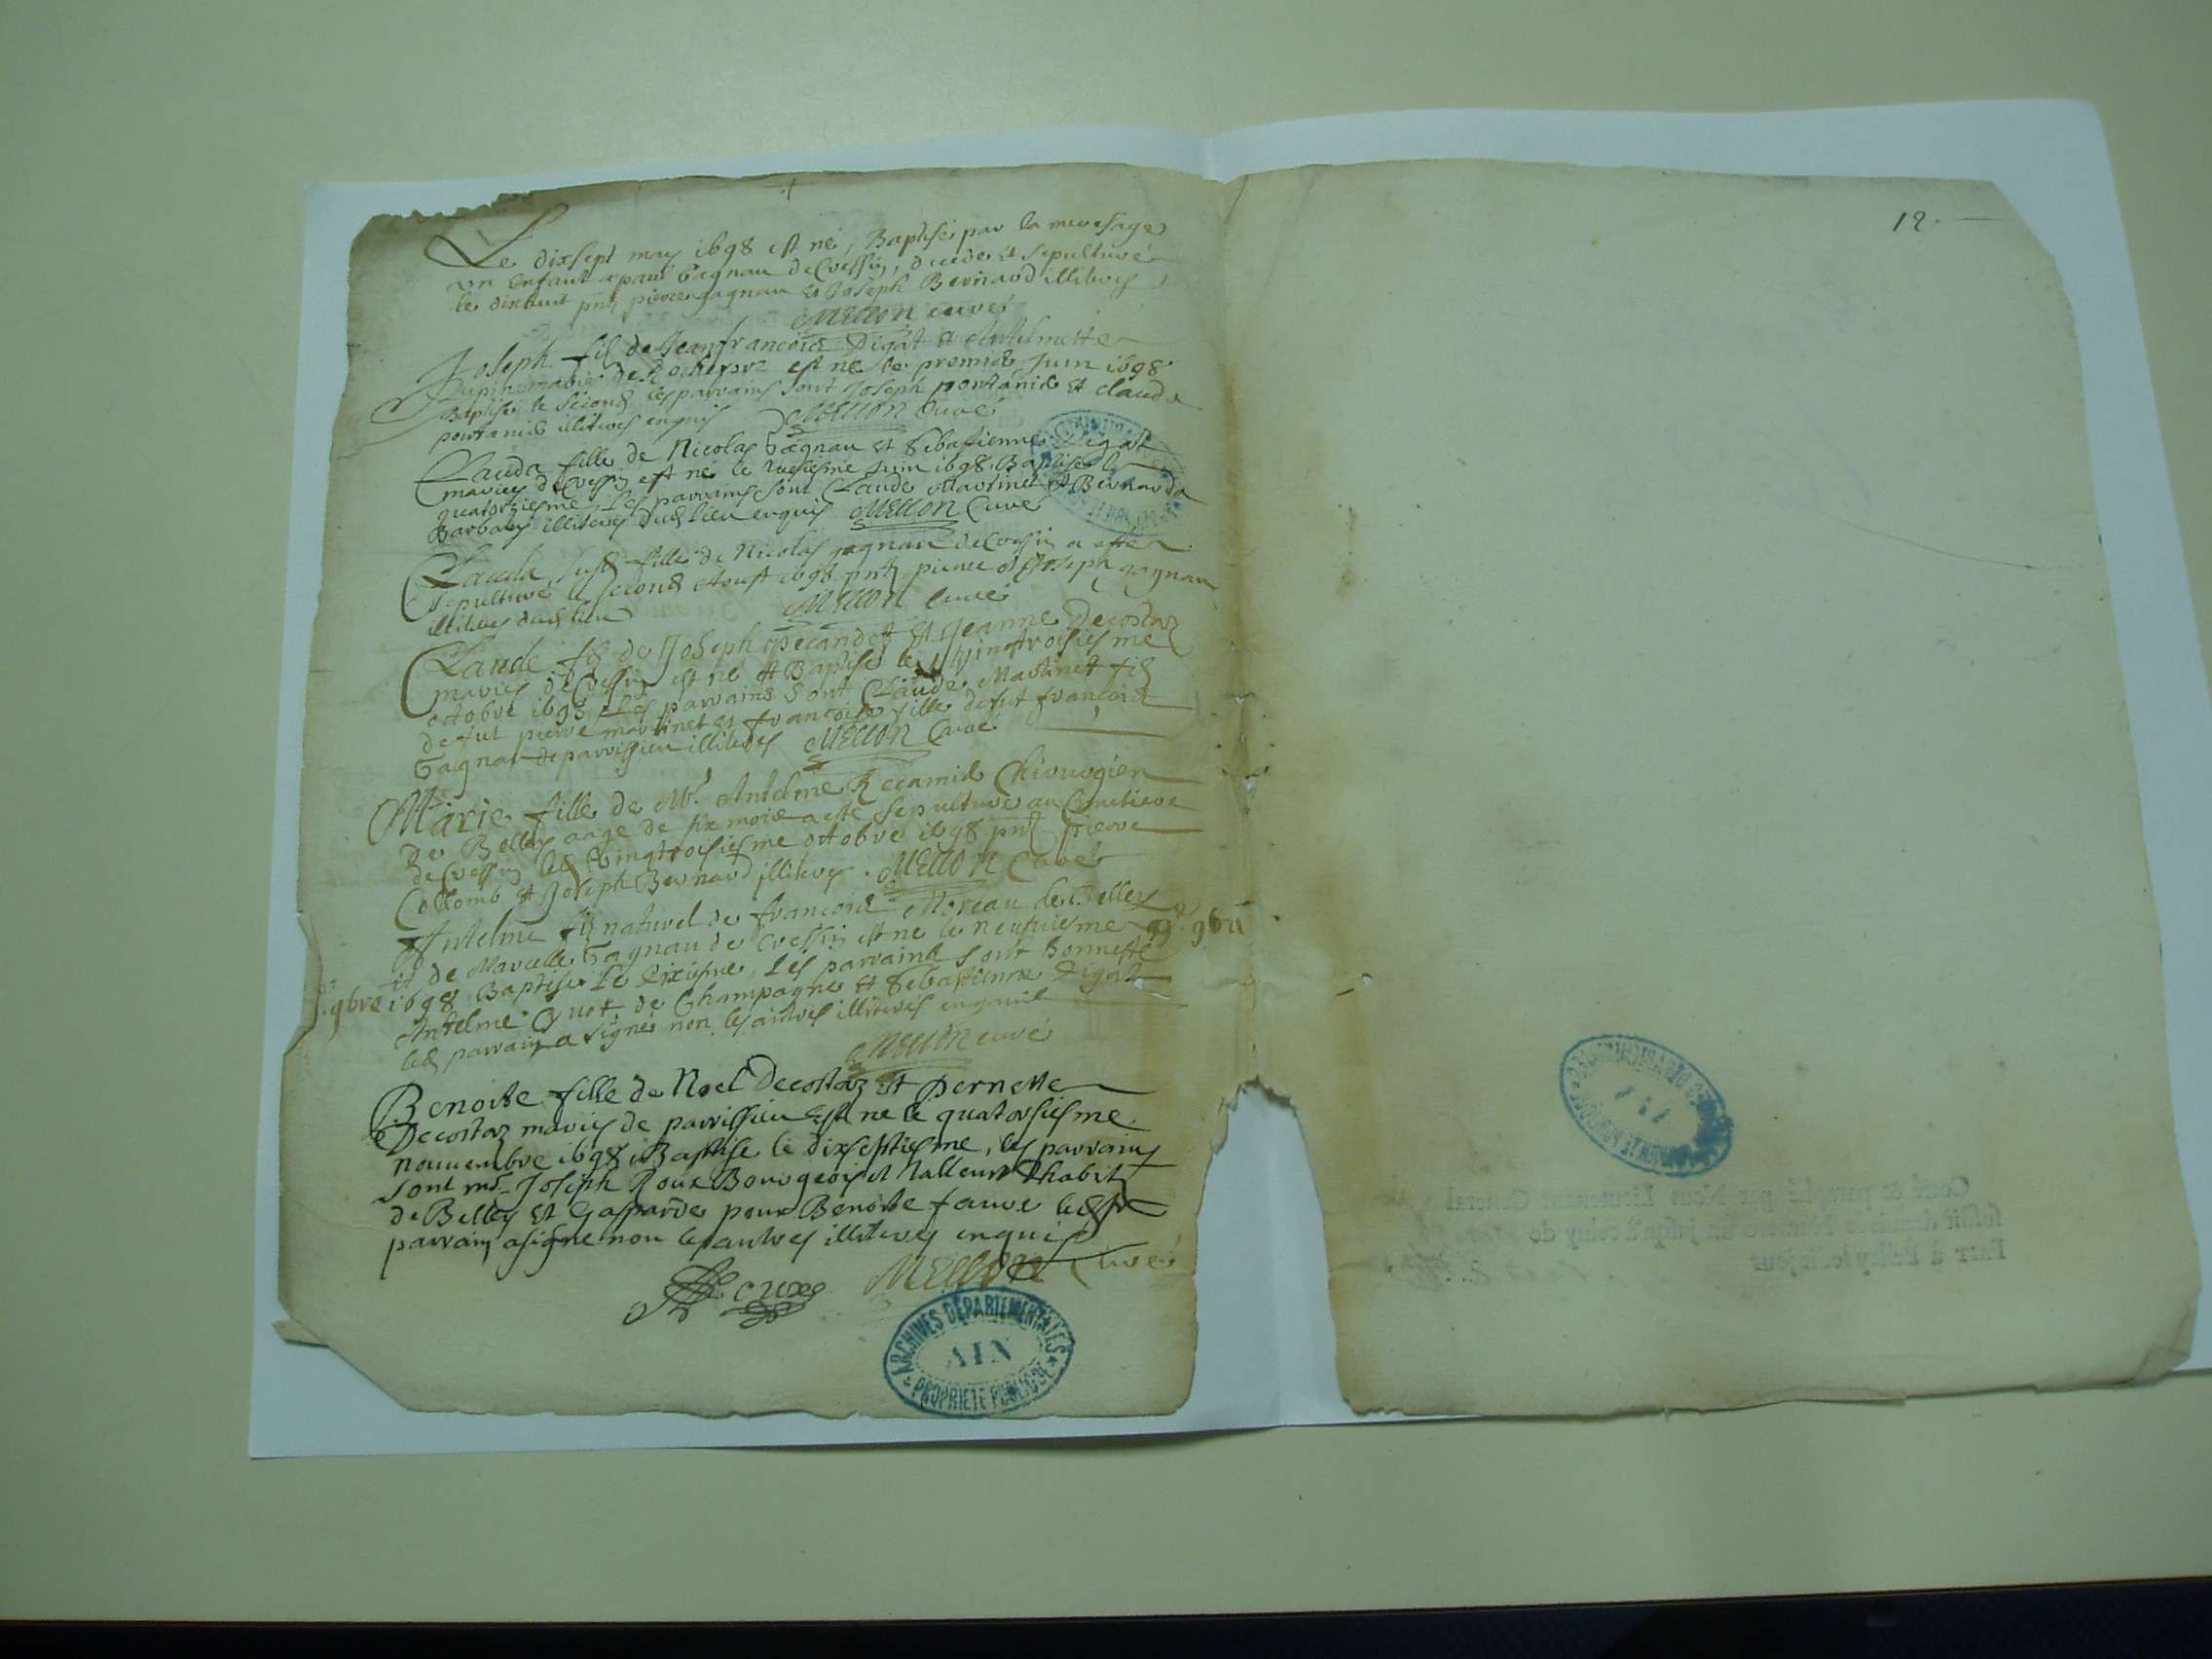 Le dixsept may 1698 est né, Baptisé par la meresage
un Enfant a paul Gagnau de Cressin, decedé et sepulturé
le dixhuit pnts pierre gagnau et Joseph Bernard illiteres
Mellon curé
Joseph fils de Jeanfrancois Digat et Anthelmette
mariés de est né le premier Juin 1698
Baptisé le second les parrains sont Joseph pontanid et clauda
pontanid illiteres enquis Mellon Curé
Clauda fille de Nicolas Gagnau et Sebastienne Digat
mariés de Cressin est né le Juin 1698 Baptisé le
quatorziesme, Les parrains sont Claude Martinet et Bernarda
Barbaley illiteres dud lieu enquis Mellon Curé
Clauda susd fille de Nicolas gagnau de Cressin a esté
sepulturé le second Aoust 1698 pnts pierre et Joseph gagnau
illiteres dud lieu Mellon Curé
Claude fils de Joseph pecandet et Jeanne Decostaz
mariés de Cressin est né et Baptisé le vingtroisiesme
octobre 1698 Les parrains sont Claude Martinet fils
de fut pierre martinet et francoise fille de fut francois
Gagnau de parvissieu illiteres Mellon Curé
Marie fille de Mr Anthelme Recamid Chirurgien
de Belley aage de six mois a esté sepulturé au Cimetiere
de Cressin led vingtroisiesme octobre 1698 pnts pierre
Collomb et Joseph Bernard illiteres. Mellon Curé
Anthelme fils naturel de francois Moreau de Belley
et de Marcelle Gagnau de Cressin est né le neufviesme
9bre 1698 Baptisé Le dixiesme, Les parrains sont honneste
Anthelme Cynot de Champagne et Sebastienne Digat
led parrain a signé non les autres illiteres enquis
Mellon curé
Benoite fille de Noel Decostaz et pernette
Decostaz mariés de parvissieu Est né le quatorsiesme
nouuembre 1698 Baptisé le dixseptiesme, les parrains
sont mr Joseph Roux Bourgeois et Habit
de Belley et Gasparde pour Benoite faure led sr
parrain a signé non les autres illiteres enquis
Mellon Curé
ARCHIVES DEPARTEMENTALES
AIN
PROPRIETE PUBLIQUE
12.